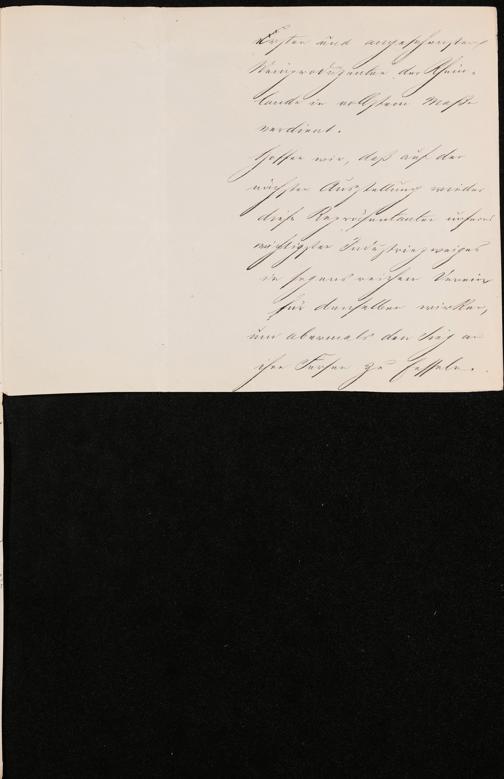 Ersten und angesehensten
Weinproduzenten der Rhein-
lande in vollstem Maße
verdient.
Hoffen wir, daß auf der
nächsten Ausstellung wieder
diese Repräsentanten unseres
wichtigsten Industriezweiges
in segensreichem Verein
für denselben wirken,
um abermals den Sieg an
ihre Fersen zu fesseln.